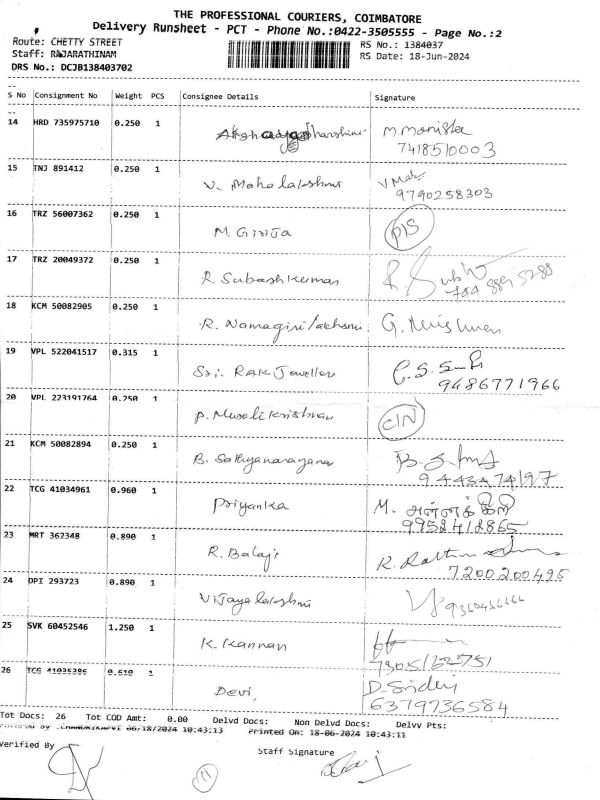 THE PROFESSIONAL COURIERS, COIMBATORE
Delivery Runsheet - PCT - Phone No.:0422-3505555 - Page No.:2
Route: CHETTY STREET
RS No.: 1384037
Staff: RAJARATHINAM
RS Date: 18-Jun-2024
DRS No.: DCJB138403702
S No Consignment No Weight PCS Consignee Details Signature
14 HRD 735975710 0.250 1 M. Monisha
7418510003
15 TNJ 891412 0.250 1 V. Mahalakshmi
9790258303
16 TRZ 56007362 0.250 1 M. Girija
17 TRZ 20049372 0.250 1 R. Subashkumar
18 KCM 50082905 0.250 1 R. Namagirilakshmi G.
19 VPL 522041517 0.315 1 Sri. RAK Jewellers
9486771966
20 VPL 223191764 0.250 1 P. Muralikrishnan
21 KCM 50082894 0.250 1 B. Sathyanarayanan
22 TCG 41034961 0.960 1 Priyanka M.
9952412865
23 MRT 362348 0.890 1 R. Balaji
7200200495
24 DPI 293723 0.890 1 Vijayalakshmi
25 SVK 60452546 1.250 1 K. Kannan
26 TCG 41035386 0.610 1 Devi, D. Sridevi
6379736584
Tot Docs: 26 Tot COD Amt: 0.00 Delvd Docs: Non Delvd Docs: Delvv Pts:
06/18/2024 10:43:13 Printed On: 18-06-2024 10:43:11
Verified By Staff Signature